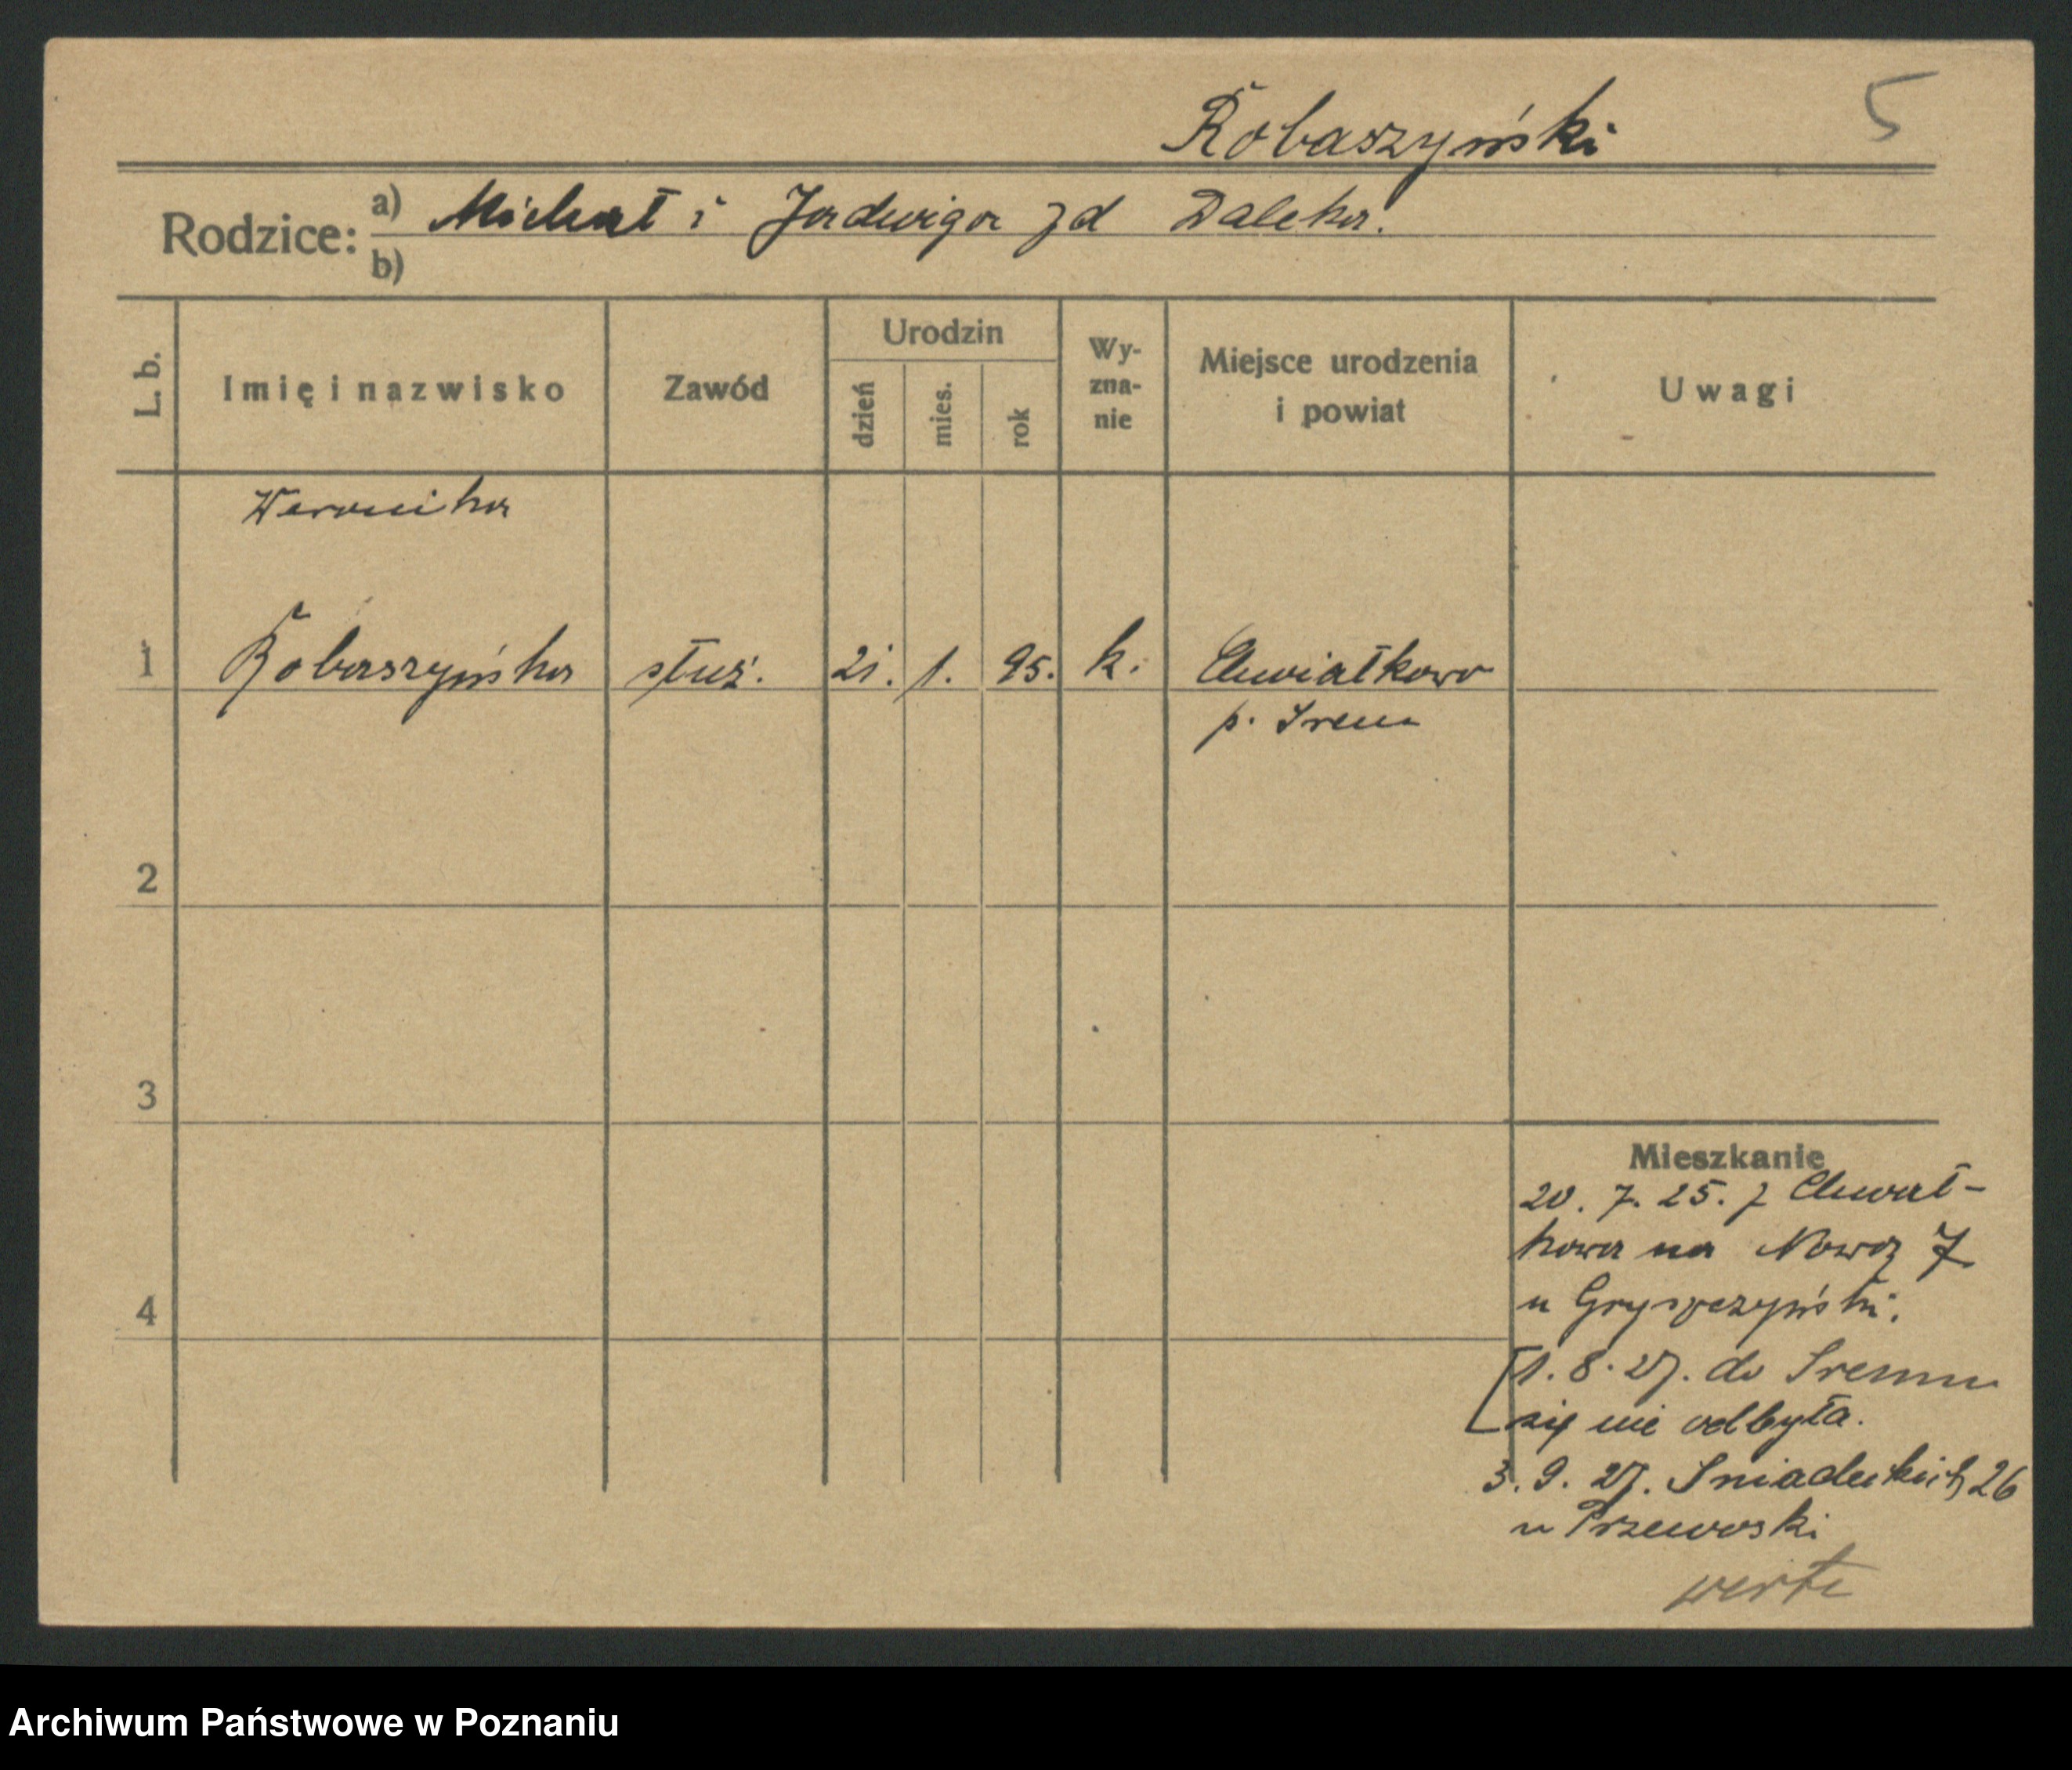 Robaszyński
5
Rodzice: a) Michał i Jadwiga zd Daleka.
b)
L. b.
Imię i nazwisko
Zawód
Urodzin
dzień
mies.
rok
Wy-
zna-
nie
Miejsce urodzenia
i powiat
Uwagi
Weronika
1 Robaszyńska służ. 21. 1. 95. k. Chwiałkowo
p. Śrem
2
3
4
Mieszkanie
20. 7. 25. z Chwał-
kowa na Nowa 7
u
[1. 8. 27. do Sremu
się nie odbyła.
3. 9. 27. Sniadeckich 26
u Przewoski
verte
Archiwum Państwowe w Poznaniu